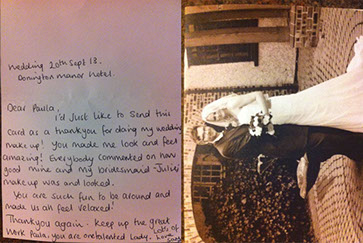 Wedding 20th Sept 13.
Donington manor Hotel.
Dear Paula,
I'd Just like to Send this
card as a thankyou for doing my wedding
make up! You made me look and feel
amazing! Everybody commented on how
good mine and my bridesmaid - Julie's
make up was and looked.
You are such fun to be around and
made us all feel relaxed!
Thankyou again - keep up the great
work Paula, you are one talented lady. Lots of
Love